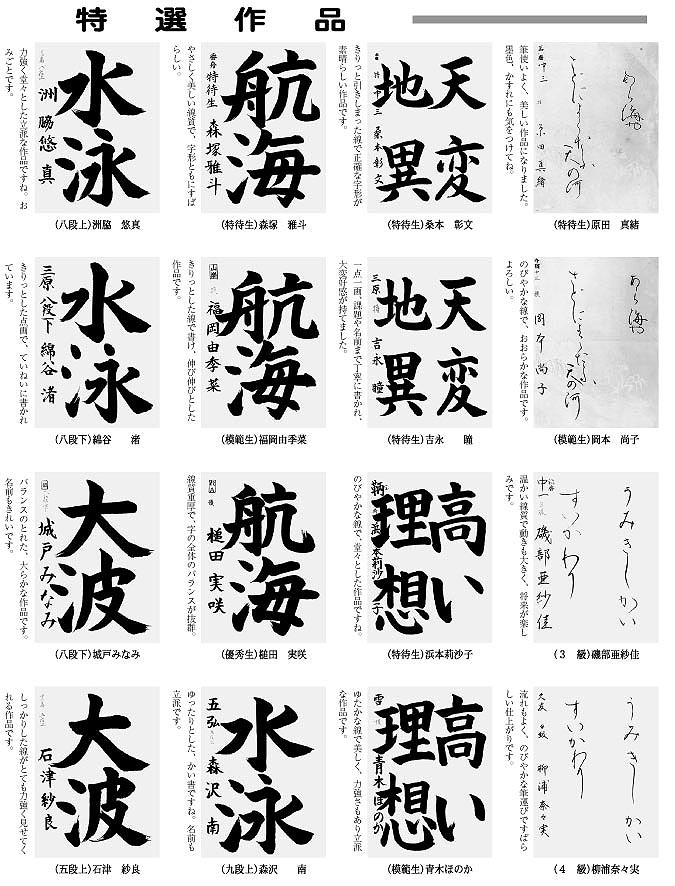 特選作品
あら海や
さどによこたふ
天の河
筆使いよく、美しい作品になりました。
墨色、かすれにも気をつけてね。
(特待生)原田　真緒
天変
地異
特待生 中三 桑本彰文
きりっと引きしまった線で正確な字形が
素晴らしい作品です。
(特待生)桑本　彰文
航海
特待生 森塚雅斗
やさしく美しい線質で、字形ともにすば
らしい。
(特待生)森塚　雅斗
水泳
洲脇悠真
力強く堂々とした立派な作品ですね。お
みごとです。
(八段上)洲脇　悠真
あら海や
さどによこたふ
天の河
岡本尚子
のびやかな線で、おおらかな作品です。
よろしい。
(模範生)岡本　尚子
天変
地異
三原 吉永瞳
一点一画、課題や名前まで丁寧に書かれ、
大変好感が持てました。
(特待生)吉永　　瞳
航海
福岡由季菜
きりっとした線で書け、伸び伸びとした
作品です。
(模範生)福岡由季菜
水泳
三原 八段下 綿谷渚
きりっとした点画で、ていねいに書かれ
ています。
(八段下)綿谷　　渚
うみきしかい
すいかわり
中一 磯部亜紗佳
温かい線質で動きも大きく、将来が楽し
みです。
(３　級)磯部亜紗佳
高い
理想
鞆 浜本莉沙子
のびやかな線で、堂々とした作品ですね。
(特待生)浜本莉沙子
航海
槌田実咲
線質重厚で、字の全体のバランスが抜群。
(優秀生)槌田　実咲
大波
城戸みなみ
バランスのとれた、大らかな作品です。
名前もきれいです。
(八段下)城戸みなみ
うみきしかい
すいかわり
柳浦奈々実
流れもよく、のびやかな筆運びですばら
しい仕上がりです。
(４　級)柳浦奈々実
高い
理想
青木ほのか
ゆたかな線で美しく、力強さもあり立派
な作品です。
(模範生)青木ほのか
水泳
五弘 森沢南
ゆったりとした、かい書ですね。名前も
立派です。
(九段上)森沢　　南
大波
石津紗良
しっかりした線がとても力強く見せてく
れる作品です。
(五段上)石津　紗良